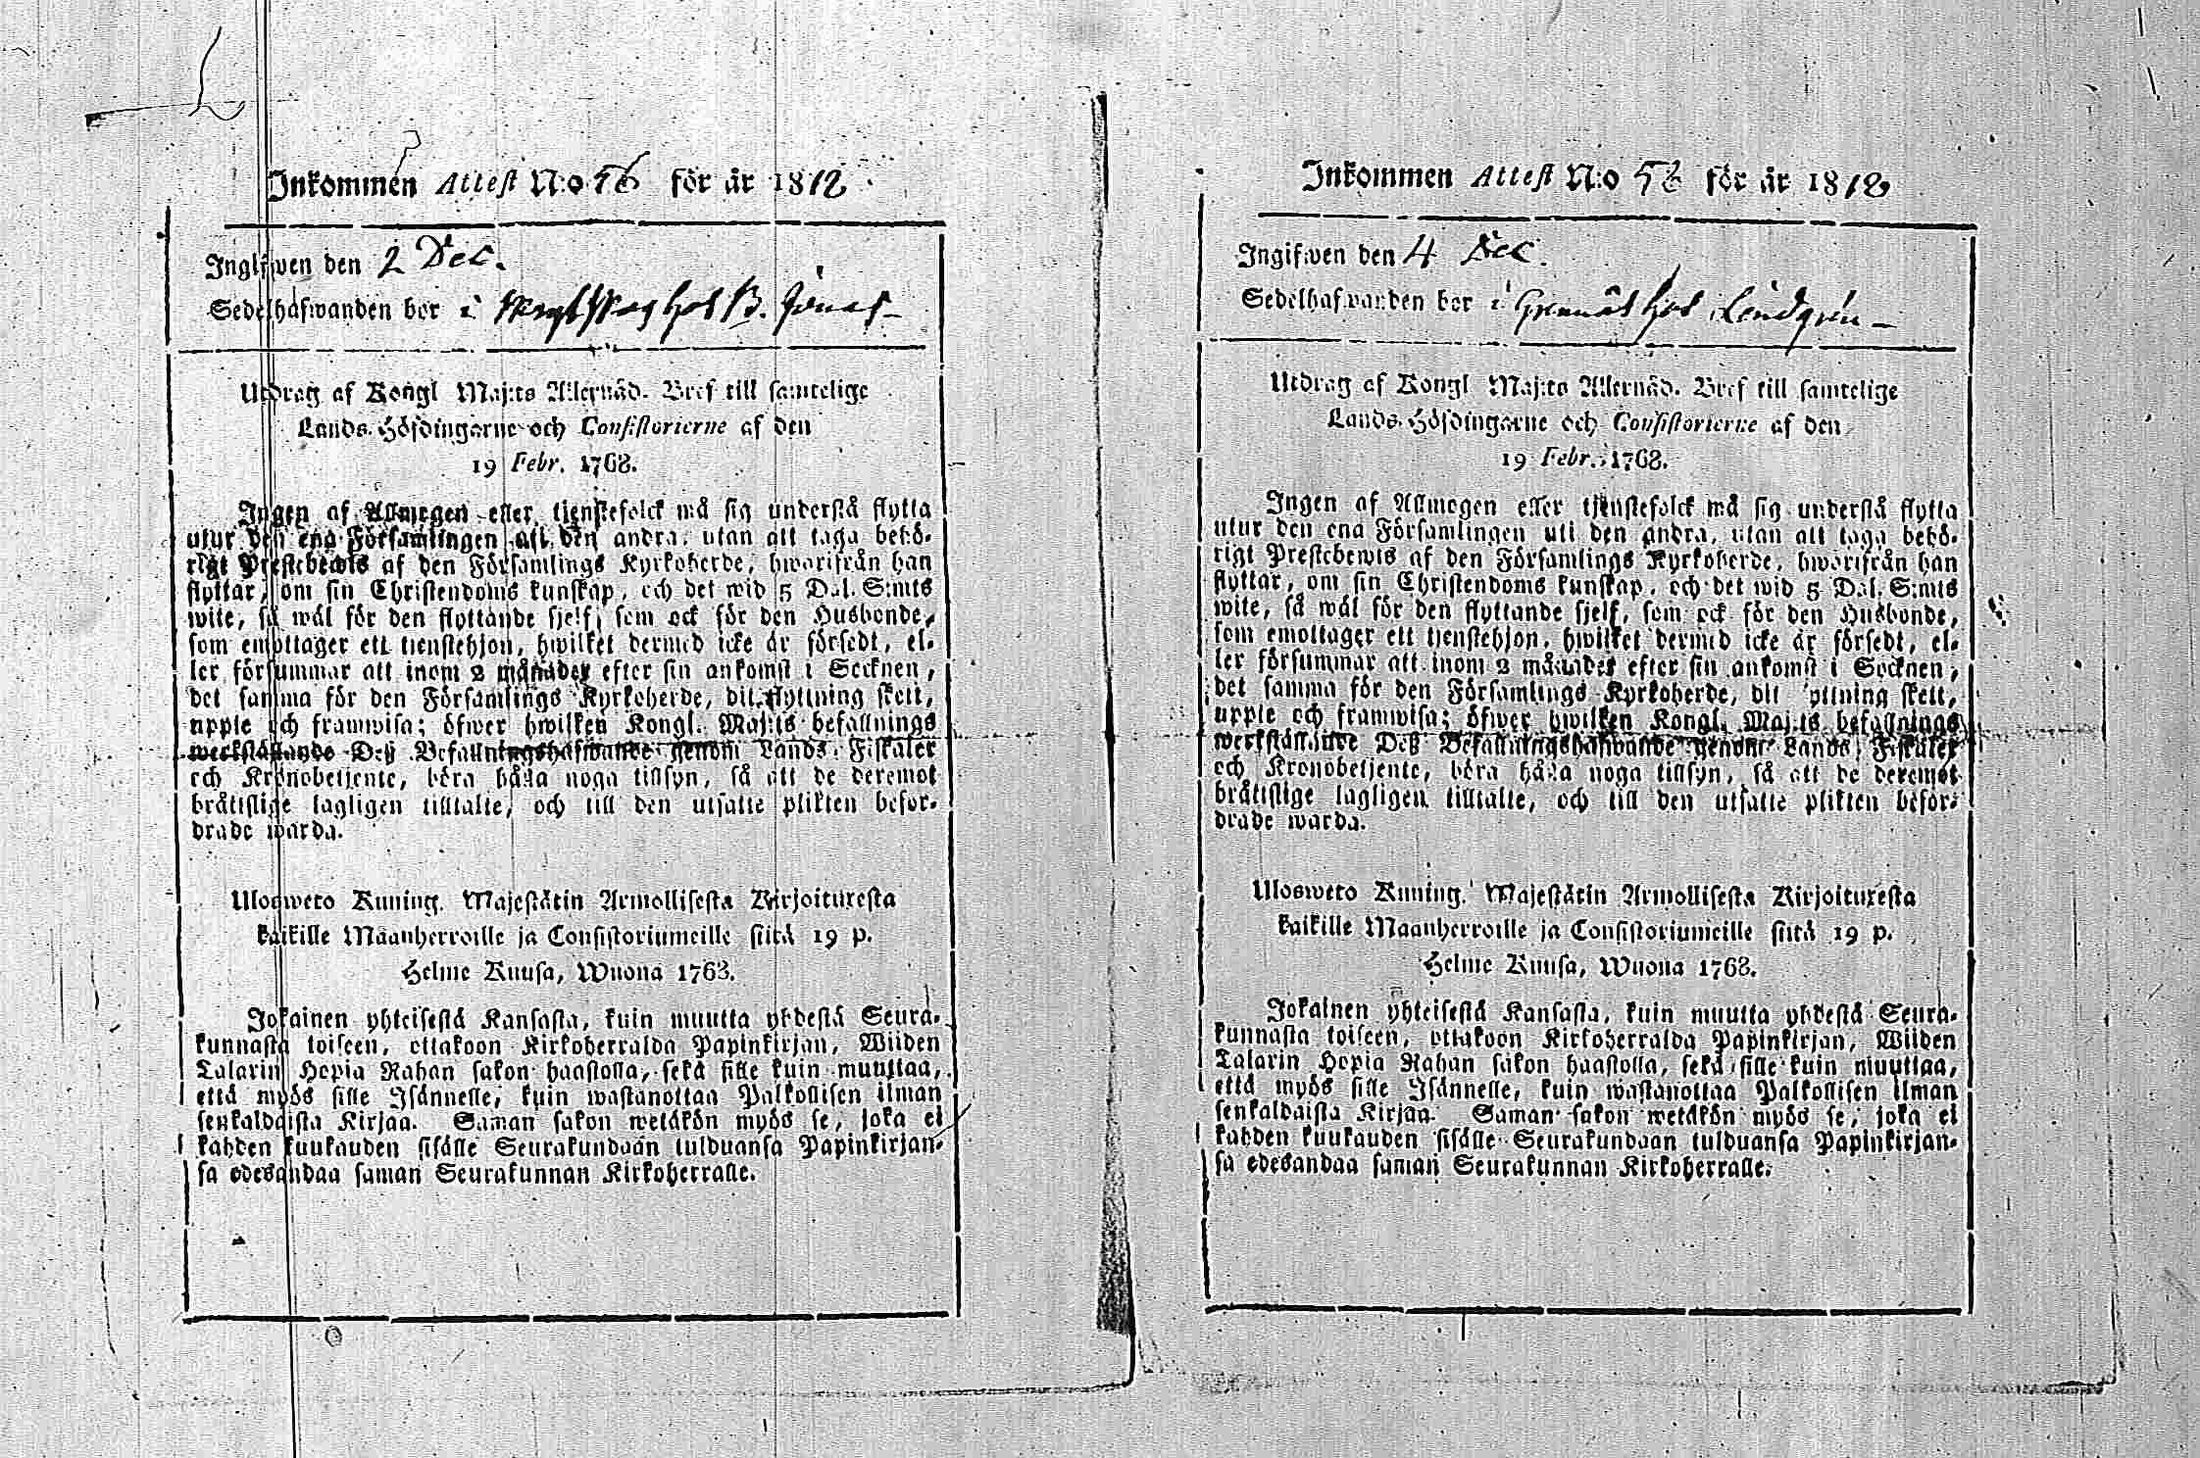 Inkommen Attest N:o 56 för år 1812
Ingifwen den 2 Dec.
Sedelhafwanden bor i hos B. Jonas
Utdrag af Kongl Maj:ts Allernåd. Bref till samtelige
Lands-Höfdingarne och Consistorierne af den
19 Febr. 1768.
Ingen af Allmogen eller tjenstefolck må sig understå flytta
utur den ena Församlingen uti den andra, utan att taga behö-
rigt Prestebewis af den Församlings Kyrkoherde, hwarifrån han
flyttar, om sin Christendoms kunskap, och det wid 5 Dal. S:mts
wite, så wäl för den flyttande sjelf, som ock för den Husbonde,
som emottager ett tienstehjon, hwilket dermed icke är försedt, el-
ler försummar att inom 2 månader efter sin ankomst i Socknen,
det samma för den Församlings Kyrkoherde, dit flyttning skett,
uppte och framwisa; öfwer hwilken Kongl. Maj:ts befallnings
werkställande Deß Befallningshafwande genom Lands-Fiskaler
och Kronobetjente, böra hålla noga tillsyn, så att de deremot
bråtislige lagligen tilltalte, och till den utsatte plikten befor-
drade warda.
Ulosweto Kuning. Majestätin Armollisesta Kirjoituxesta
kaikille Maanherroille ja Consistoriumeille siitä 19 p.
Helme Kuusa, Wuona 1768.
Jokainen yhteisestä Kansasta, kuin muutta yhdestä Seura-
kunnasta toiseen, ottakoon Kirkoherralda Papinkirjan, Wiiden
Talarin Hopia Rahan sakon haastolla, sekä sille kuin muuttaa,
että myös sille Isännelle, kuin wastanottaa Palkollisen ilman
senkaldaista Kirjaa. Saman sakon wetäkön myös se, joka ei
kahden kuukauden sisälle Seurakundaan tulduansa Papinkirjan-
sa edesandaa saman Seurakunnan Kirkoherralle.
Inkommen Attest N:o 58 för år 1812
Ingifwen den 4 Dec.
Sedelhafwanden bor i hos Lindgrén
Utdrag af Kongl Maj:ts Allernåd. Bref till samtelige
Lands-Höfdingarne och Consistorierne af den
19 Febr. 1768.
Ingen af Allmogen eller tjenstefolck må sig understå flytta
utur den ena Församlingen uti den andra, utan att taga behö-
rigt Prestebewis af den Församlings Kyrkoherde, hwarifrån han
flyttar, om sin Christendoms kunskap, och det wid 5 Dal. S:mts
wite, så wäl för den flyttande sjelf, som ock för den Husbonde,
som emottager ett tjenstehjon, hwilket dermed icke är försedt, el-
ler försummar att inom 2 månader efter sin ankomst i Socknen,
det samma för den Församlings Kyrkoherde, dit flyttning skett,
uppte och framwisa; öfwer hwilken Kongl. Maj:ts befallnings
werkställande Deß Befallningshafwande genom Lands-Fiskaler
och Kronobetjente, böra hålla noga tillsyn, så att de deremot
bråtislige lagligen tilltalte, och till den utsatte plikten befor-
drade warda.
Ulosweto Kuning. Majestätin Armollisesta Kirjoituxesta
kaikille Maanherroille ja Consistoriumeille siitä 19 p.
Helme Kuusa, Wuona 1768.
Jokainen yhteisestä Kansasta, kuin muutta yhdestä Seura-
kunnasta toiseen, ottakoon Kirkoherralda Papinkirjan, Wiiden
Talarin Hopia Rahan sakon haastolla, sekä sille kuin muuttaa,
että myös sille Isännelle, kuin wastanottaa Palkollisen ilman
senkaldaista Kirjaa. Saman sakon wetäkön myös se, joka ei
kahden kuukauden sisälle Seurakundaan tulduansa Papinkirjan-
sa edesandaa saman Seurakunnan Kirkoherralle.